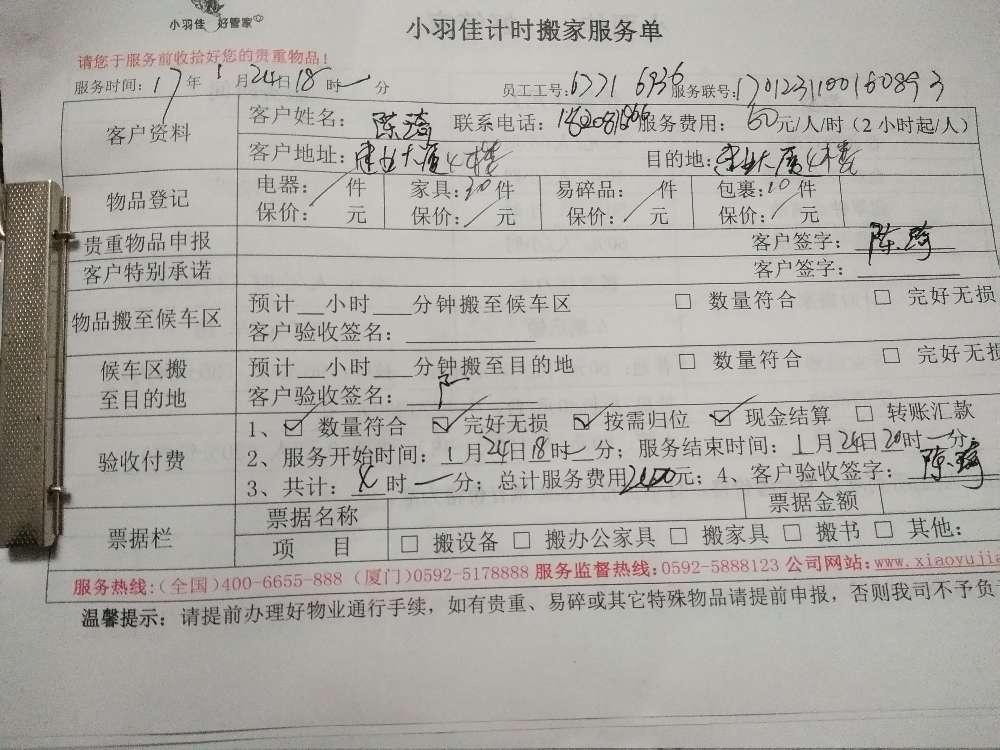 小羽佳 好管家
小羽佳计时搬家服务单
请您于服务前收拾好您的贵重物品！
服务时间：17年1月24日18时一分 员工工号：6771 6936 服务联号：1701231100160893
客户资料 客户姓名：陈琦 联系电话： 服务费用：60元/人/时（2小时起/人）
客户地址：建业大厦4楼 目的地：建业大厦4楼
物品登记 电器：/件 家具：30件 易碎品：/件 包裹：10件
保价：/元 保价：/元 保价：/元 保价：/元
贵重物品申报 客户签字：陈琦
客户特别承诺 客户签字：
物品搬至候车区 预计__小时___分钟搬至候车区 □ 数量符合 □ 完好无损
客户验收签名：
候车区搬至目的地 预计__小时___分钟搬至目的地 □ 数量符合 □ 完好无损
客户验收签名：
验收付费 1、☑ 数量符合 ☑ 完好无损 ☑ 按需归位 ☑ 现金结算 □ 转账汇款
2、服务开始时间：1月24日18时一分；服务结束时间：1月24日20时一分；
3、共计： 时一分；总计服务费用2400元；4、客户验收签字：陈琦
票据栏 票据名称 票据金额
项 目 □ 搬设备 □ 搬办公家具 □ 搬家具 □ 搬书 □ 其他：
服务热线：（全国）400-6655-888（厦门）0592-5178888 服务监督热线：0592-5888123 公司网站：www.xiaoyujia
温馨提示：请提前办理好物业通行手续，如有贵重、易碎或其它特殊物品请提前申报，否则我司不予负